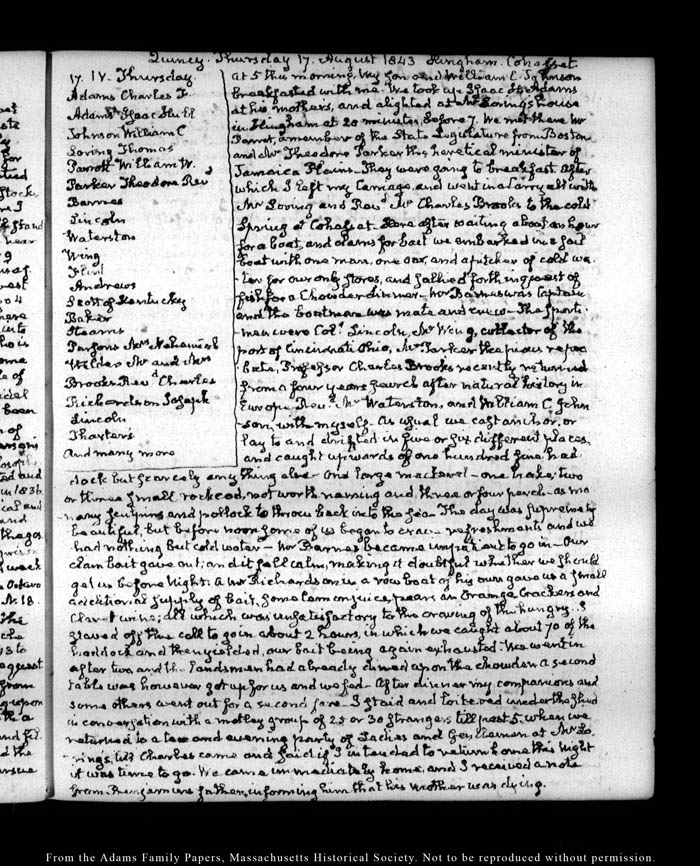 Quincy. Thursday 17. August 1843. Hingham. Cohasset
17. IV. Thursday.
Adams Charles F.
Adams Isaac Hull
Johnson William C
Loring Thomas
Parrott William W.
Parker Theodore Revd
Barnes
Lincoln
Waterston
Wing
Flint
Andrews
Scott of Kentucky
Baker
Stearns
Parsons Mrs Nehemiah
Wilder Mr and Mrs
Brooks Revd Charles
Richardson Joseph
Lincoln
Thaxters
And many more
at 5 this morning, my son and William C. Johnson
breakfasted with me. We took up Isaac H. Adams
at his mother's, and alighted at Mr Loring's house
in Hingham at 20 minutes before 7. We met there Mr
Parrot, a member of the State Legislature from Boston
and Mr Theodore Parker the heretical minister of
Jamaica Plain. They were going to breakfast. After
which I left my Carriage, and went in a Carry all with
Mr Loring and Revd Mr Charles Brooks to the cold
Spring at Cohasset. Here after waiting about an hour
for a boat, and clams for bait we embarked in a sail
boat with one man, one oar, and a pitcher of cold wa-
ter for our only stores, and sallied forth in quest of
fish for a Chowder dinner. Mr Barnes was Captain
and the boatman was mate and crew. The sports-
men were Col. Lincoln, Mr Wing, collector of the
port of Cincinnati Ohio, Mr Parker the pious repro-
bate, Professor Charles Brooks recently returned
from a four years search after natural history in
Europe, Revd Mr Waterston, and William C. John
son, with myself. As usual we cast anchor, or
lay to and drifted in five or six different places,
and caught upwards of one hundred fine had-
dock but scarcely any thing else. One large mackerel - one hake, two
or three small rock cod, not worth naming and three or four perch - as ma-
ny sculpins and pollock to throw back into the Sea. The day was supremely
beautiful, but before noon some of us began to crave refreshments and we
had nothing but cold water - Mr Barnes became impatient to go in - Our
clam bait gave out; and it fell calm, making it doubtful whether we should
get in before Night. A Mr Richardson in a row boat of his own gave us a small
additional supply of bait, some lemon juice, pears, an Orange Crackers and
Claret wine; all which was unsatisfactory to the craving of the hungry. I
staved off the call to go in about 2 hours, in which we caught about 70 of the
haddock and then yielded, our bait being again exhausted. We went in
after two and the landsmen had already dined upon the chowder. A second
table was however got up for us and we fed - After dinner my companions and
some others went out for a second fare - I staid and loitered under the shed
in conversation with a motley group of 25 or 30 strangers till past 5. when we
returned to a tea and evening party of Ladies and Gentlemen at Mr Lo-
ring's, till Charles came and said if I intended to return home this Night
it was time to go. We came immediately home, and I received a note
from father, informing him that his mother was dying.
From the Adams Family Papers, Massachusetts Historical Society. Not to be reproduced without permission.